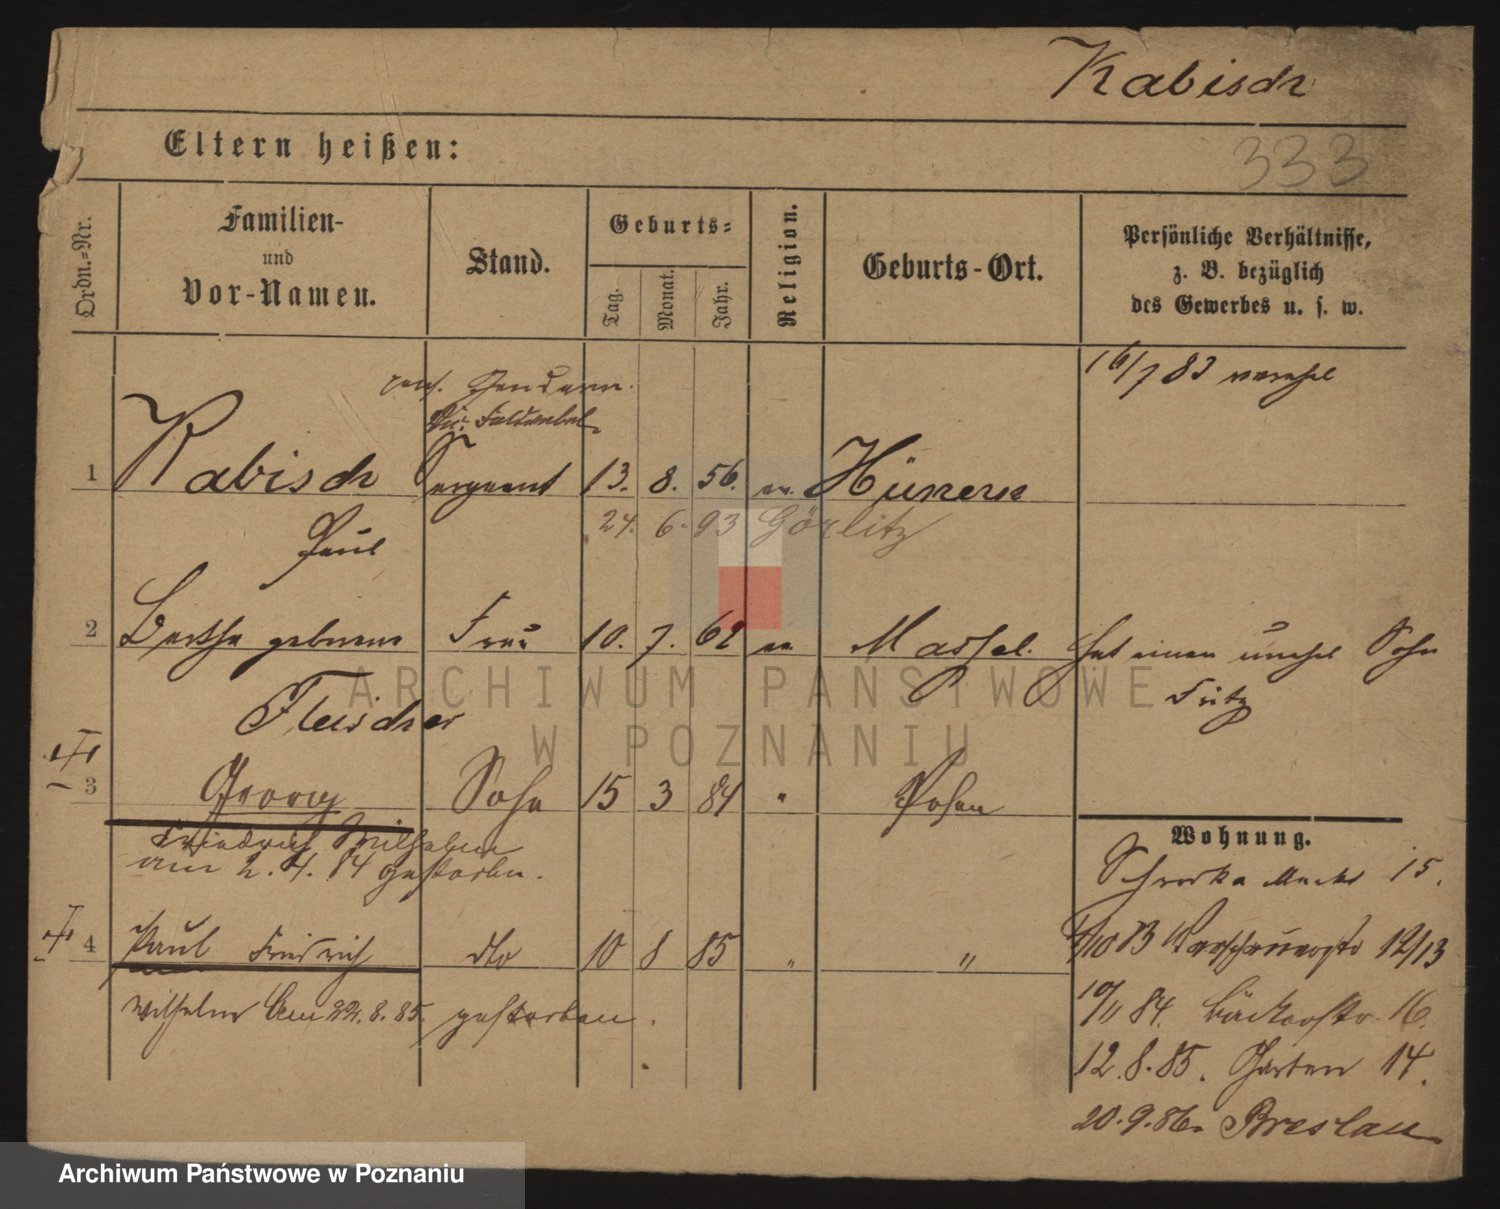 Kabisch
Eltern heißen:
333
Ordn.-Nr.
Familien-
und
Vor-Namen.
Stand.
Geburts-
Tag.
Monat.
Jahr.
Religion.
Geburts-Ort.
Persönliche Verhältnisse,
z. B. bezüglich
des Gewerbes u. s. w.
16/7 83 verehel
Gendarm.
Vice Feldwebel
1 Kabisch Sergeant 13. 8. 56. ev. Hünern
24. 6. 93 Görlitz
Paul
2 Bertha geborene Frau 10. 7. 62 ev Massel. Hat einen unehel Sohn
Fritz
Fleischer
3 Georg Sohn 15 3 84 " Posen
Friedrich Wilhelm
am 2. 4. 84 gestorben.
Wohnung.
Schrodka Markt 15.
4 Paul Friedrich dto 10 8 85 " "
Wilhelm am 22. 8. 85. gestorben.
/10 83 Warschauerstr 12/13
10/11 84. Bäckerstr. 16.
12. 8. 85. Garten 14.
20. 9. 86. Breslau
ARCHIWUM PAŃSTWOWE
W POZNANIU
Archiwum Państwowe w Poznaniu